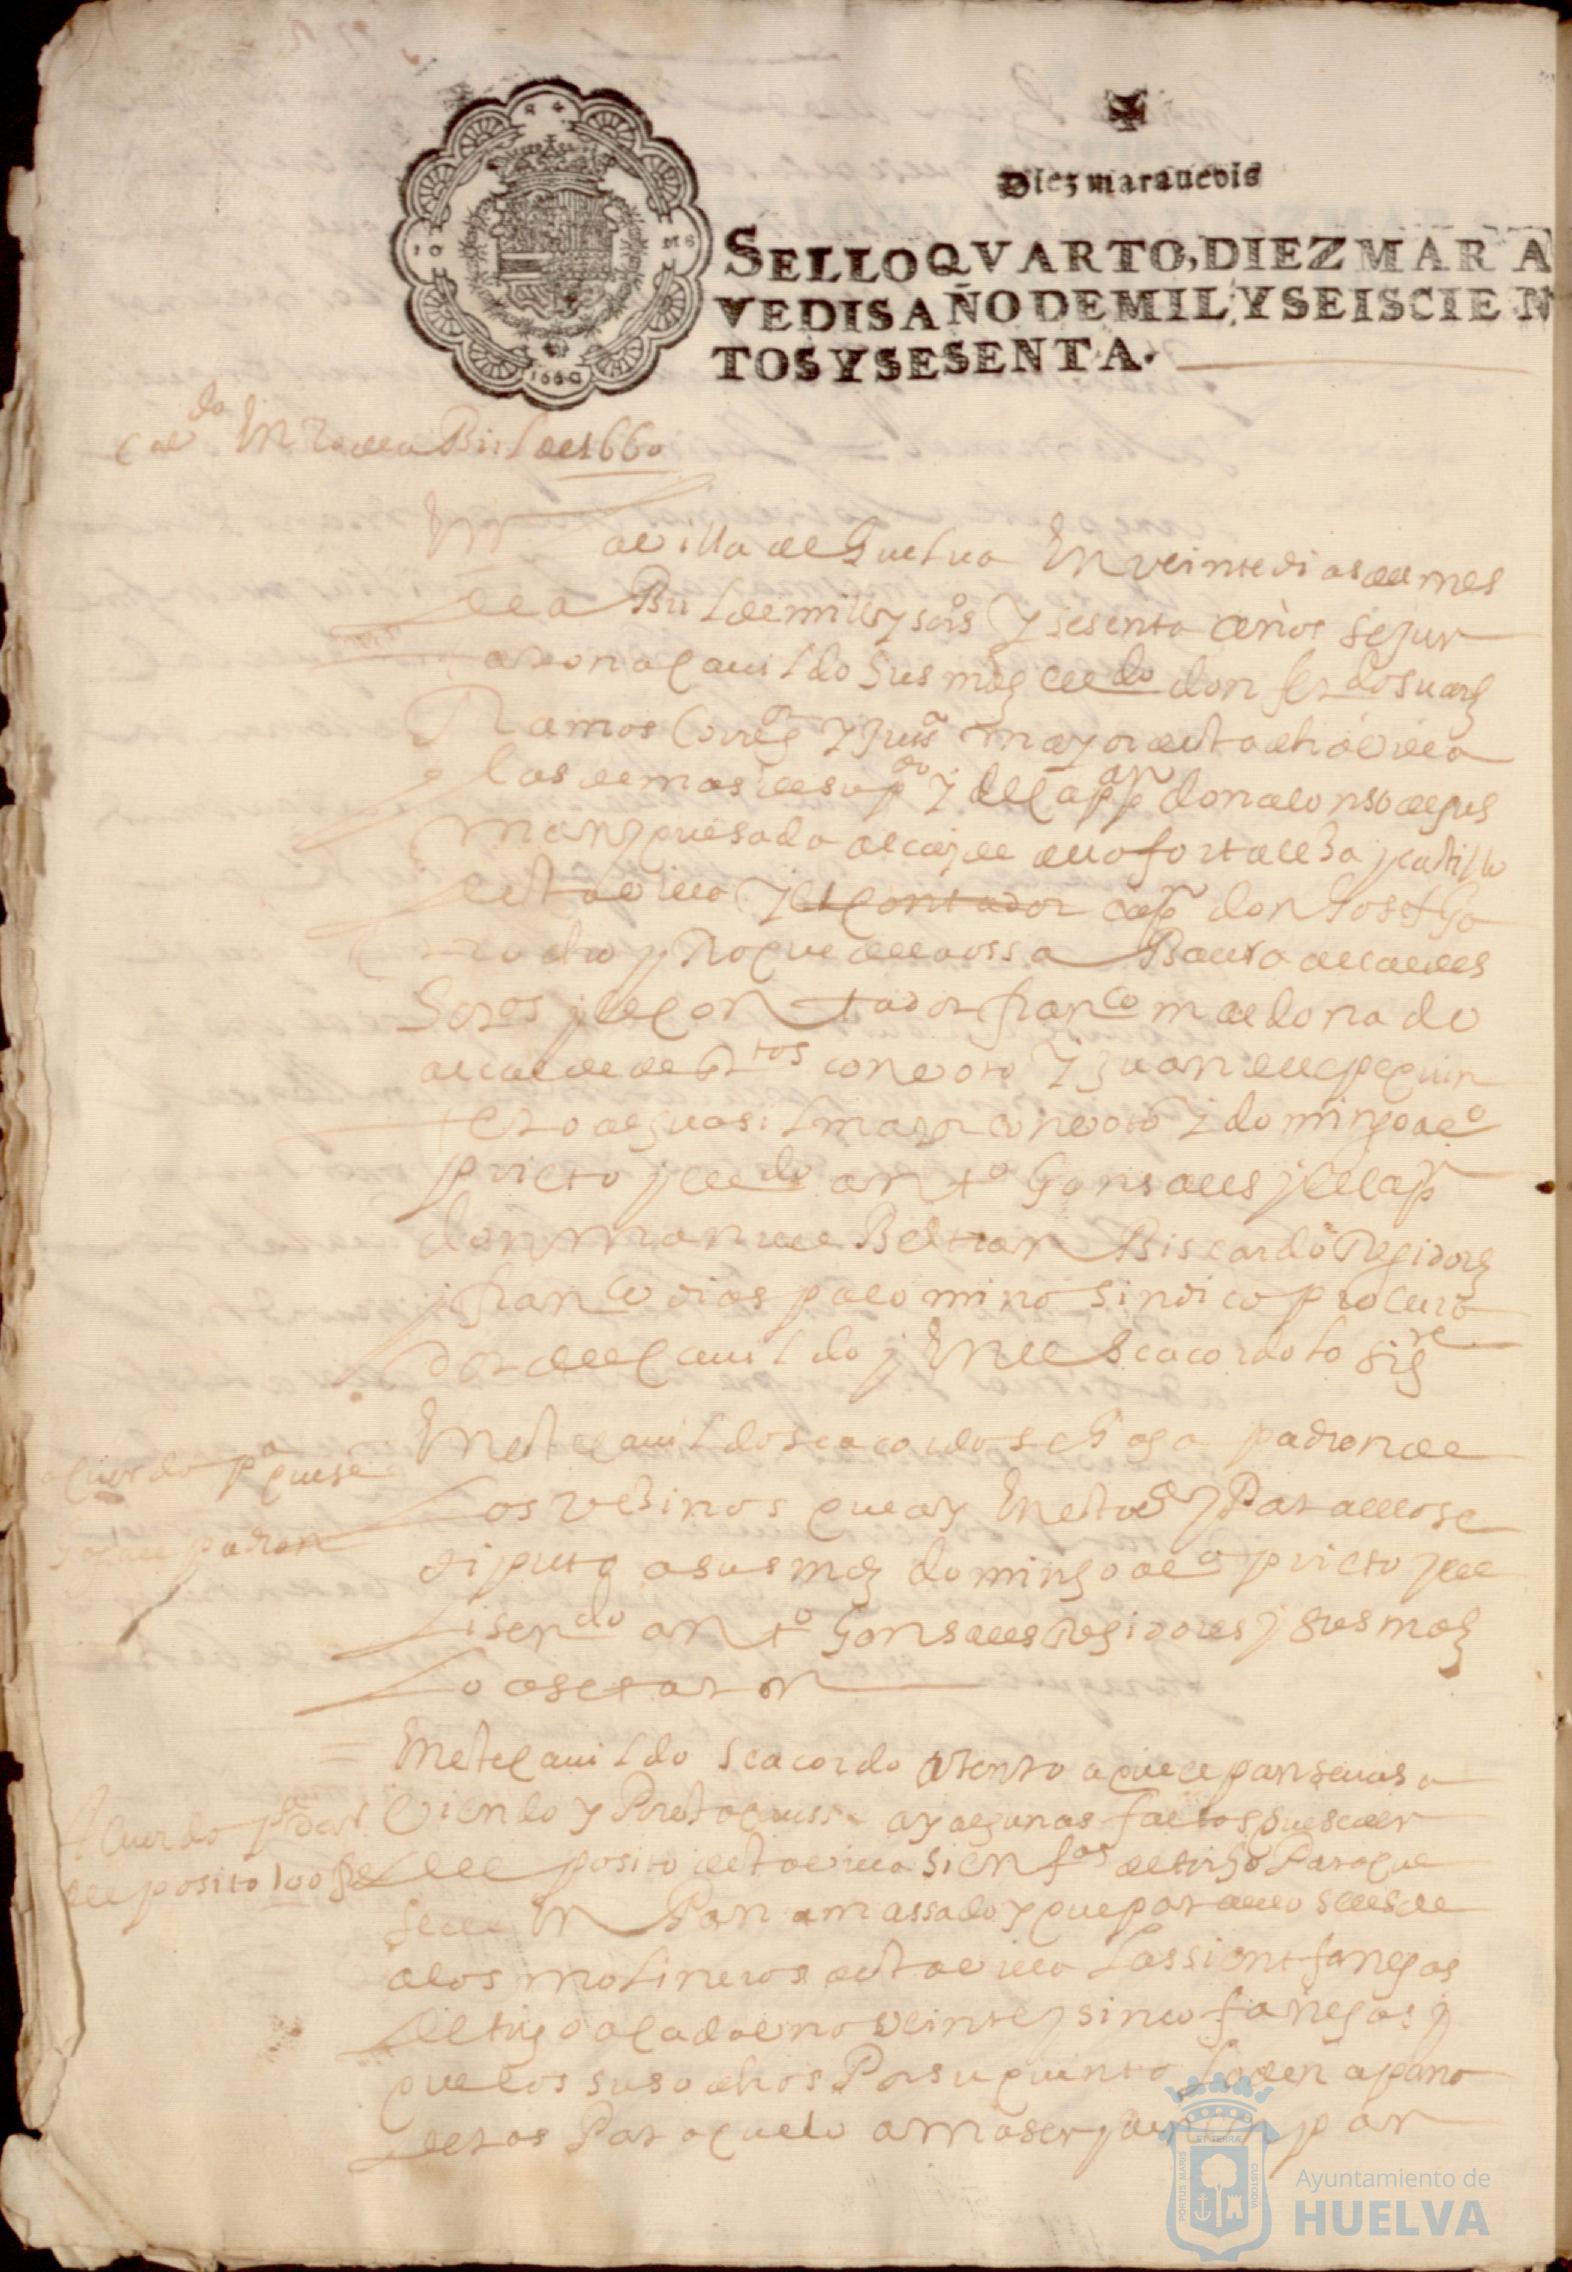 Diez maravedis
SELLO QVARTO, DIEZ MARA
VEDIS AÑO DE MIL Y SEISCIEN
TOS Y SESENTA.
10 MS
1660
Caudo En 20 de aBril de 1660
En la villa de Huelua En veinte dias del mes
de aBril de mill y sos y sesenta años se jun
taron a cauildo sus mds el ldo don
Ramos Corregor y Jues mayor desta dha villa
y las demas de su pdo y del capan don alonso de gus
man y quesada alcaide de la fortalesa y castillo
desta villa y el contador capn don Josef Ga
y Roque de la ossa Bauta alcaldes
y el contador franco maldonado
alcalde de con voto y Juan de
alguasil mayor con voto y domingo alo
prieto y el ldo anto Gonsales y el capn
don manuel Beltran Biscardo Regidores
y franco dias palomino sindico procura
dor del cauildo y En el se acordo lo sigte
acuerdo pa que se
aga el padron
En este cauildo se acordo se haga padron de
los vesinos que ay En esta va y Para ello se
diputo a sus mds domingo alo prieto y el
lisendo anto Gonsales Regidores y sus mds
lo asetaron
Acuerdo pa dar
del posito 100 fs
= En este cauildo se acordo atento a que el pan se va
y Por esta causa ay algunas faltas que se den
del posito desta villa sien fas de trigo Para que
se den En Pan amassado y que para ello se les de
a los molineros desta villa las sient fanegas
de trigo a cada uno veinte y sinco fanegas y
que los susodhos Por su quento lo den a pana
deros Para que lo amasen y pan
PORTUS MARIS
ET TERRÆ
CUSTODIA
Ayuntamiento de
HUELVA